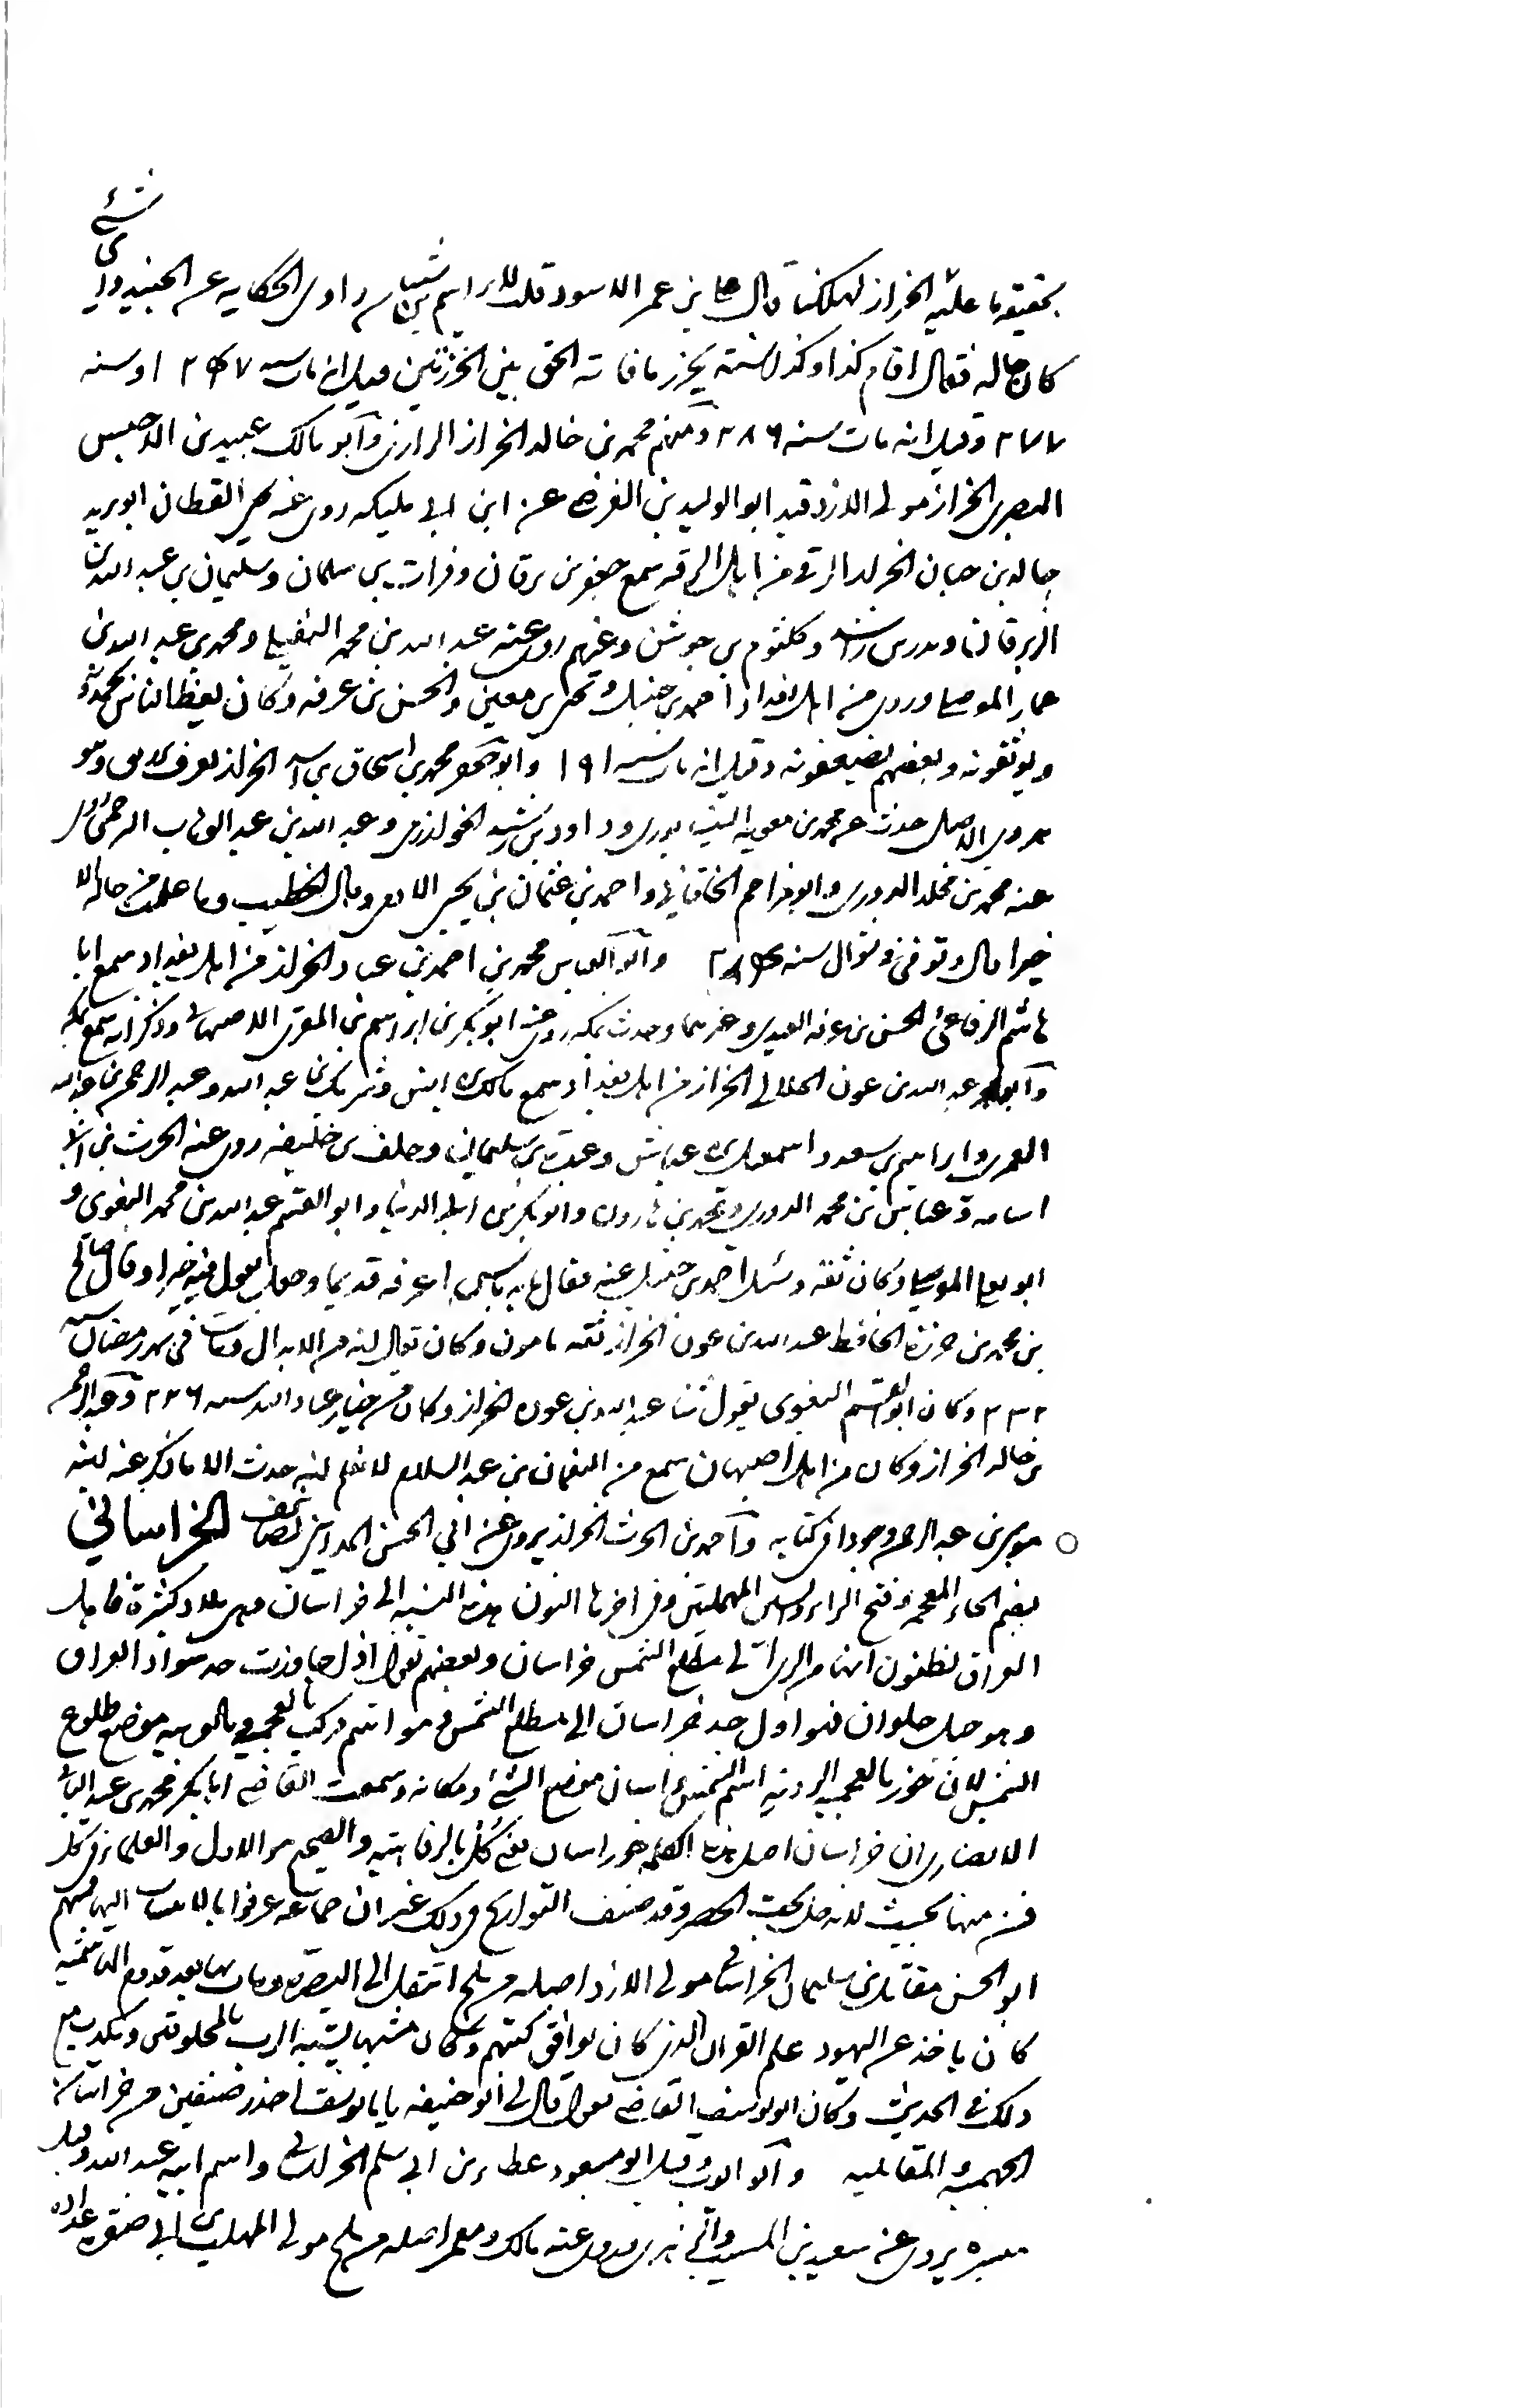 شئ
بحقيقة ما عليه الخراز لهلكنا قال علي بن عمر الاسود قلت لابراهيم بن شيبان راوى الحكاية عن الجنيد واى
كان حاله فقال اقام كذا وكذا سنة يخرز ما فاته الحق بين الخرزتين وقيل انه مات سنه او سنه
٢٧٧ وقيل انه مات سنه ٢٨٦ ومنهم محمد بن خالد الخراز الرازى وابو مالك عبيد بن الاخنس
البصرى الخراز مولى الازد قيده ابو الوليد بن الفرضى عن ابن ابى مليكه روى عنه يحيى القطان ابو يزيد
خالد بن حيان الخراز الرقى من اهل الرقه سمع جعفر بن برقان وفرات بن سلمان وسليمان بن عبد الله بن
الزبرقان وكلثوم بن جوشن وغيرهم روى عنه عبد الله بن محمد النفيلى ومحمد بن عبد الله بن
عمار الموصلى وروى من اهل بغداد احمد بن حنبل ويحيى بن معين والحسن بن عرفه وكان بعض الناس
ويوثقونه وبعضهم يضعفونه وقيل انه مات سنه ١٩١ وابو جعفر محمد بن اسحاق بن اسد الخراز يعرف وهو
هروى الاصل حدث عن محمد بن معوية النيسابورى وداود بن رشيد الخوارزمى وعبد الله بن عبد الوهاب روى
عنه محمد بن مخلد الدورى وابو مزاحم الخاقانى واحمد بن عثمان بن يحيى الادمى وقال الخطيب وما علمت من حاله الا
خيرا قال وتوفى فى شوال سنه وابو العباس محمد بن احمد بن عباد الخراز من اهل بغداد سمع ابا
هاشم الرفاعى والحسن بن عرفه العبدى وغيرهما وحدث بمكه روى عنه ابو بكر بن ابراهيم بن المقرى الاصبهانى وذكر انه سمع بمكه
وابو عبد الله بن عون الهلالى الخراز من اهل بغداد سمع مالك بن انس وشريك بن عبد الله وعبد الرحمن بن عبد الله
العمرى وابراهيم بن سعد واسمعيل بن عياش وعبدة بن سليمان وخلف بن خليفه روى عنه الحرث بن ابى
اسامه وعباس بن محمد الدورى ومحمد بن هارون وابو بكر بن ابى الدنيا وابو القسم عبد الله بن محمد البغوى و
ابو يعلى الموصلى وكان ثقة وسئل احمد بن حنبل عنه فقال ما به باس اعرفه قديما وجعل يقول فيه خيرا وقال صالح
بن محمد بن جزرة الحافظ عبد الله بن عون الخراز ثقه مامون وكان يقال انه من الابدال ومات فى شهر رمضان سنه
٢٣٢ وكان ابو القسم البغوى يقول ثنا عبد الله بن عون الخراز وكان من خيار عباد الله سنه ٢٢٦ وعبد الرحمن
بن خالد الخراز وكان من اهل اصبهان سمع من النعمان بن عبد السلام لا نعلم انه حدث الا ما ذكر عنه ابنه
موسى بن عبد الرحمن وجودا فى كتابه واحمد بن الحرث الخراز يروى عن ابى الحسن المداينى تصانيفه الخراسانى
بضم الخاء المعجمه وفتح الراء والسين المهملتين وفى اخرها النون هذه النسبه الى خراسان وهى بلاد كثيرة فاهل
العراق يظنون انها من الرى الى مطلع الشمس خراسان وبعضهم يقول اذا جاوزت حد سواد العراق
وهو جبل حلوان فهو اول حد خراسان الى مطلع الشمس وهو اسم مركب بالعجمى وبالعربيه موضع طلوع
الشمس لان خور بالعجميه الدريه اسم الشمس واسان موضع الشئ ومكانه وسمعت القاضى ابا بكر محمد بن عبد الباقى
الانصارى ان خراسان اصل هذه الكلمه خور اسان يعنى كل بالرفاهيه والصحيح هو الاول والعلماء فى كل
فن منها بحيث لا يدخل تحت الحصر وقد صنف التواريخ فى ذلك غير ان جماعه عرفوا بالانتساب اليها فمنهم
ابو الحسن مقاتل بن سليمان الخراسانى مولى الازد اصله من بلخ انتقل الى البصره ومات بها بعد قدوم الهاشميه
كان ياخذ عن اليهود علم القران الذى كان يوافق كتبهم وكان مشبها يشبه الرب بالمخلوقين ويكذب مع
ذلك فى الحديث وكان ابو يوسف القاضى يقول قال لى ابو حنيفه يا با يوسف احذر صنفين من خراسان
الجهميه والمقاتليه وابو ايوب وقيل ابو مسعود عطاء بن ابى مسلم الخراسانى واسم ابيه عبد الله وقيل
ميسره يروى عن سعيد بن المسيب والزهرى روى عنه مالك ومعمر اصله من بلخ مولى المهلب بن ابى صفره عداده